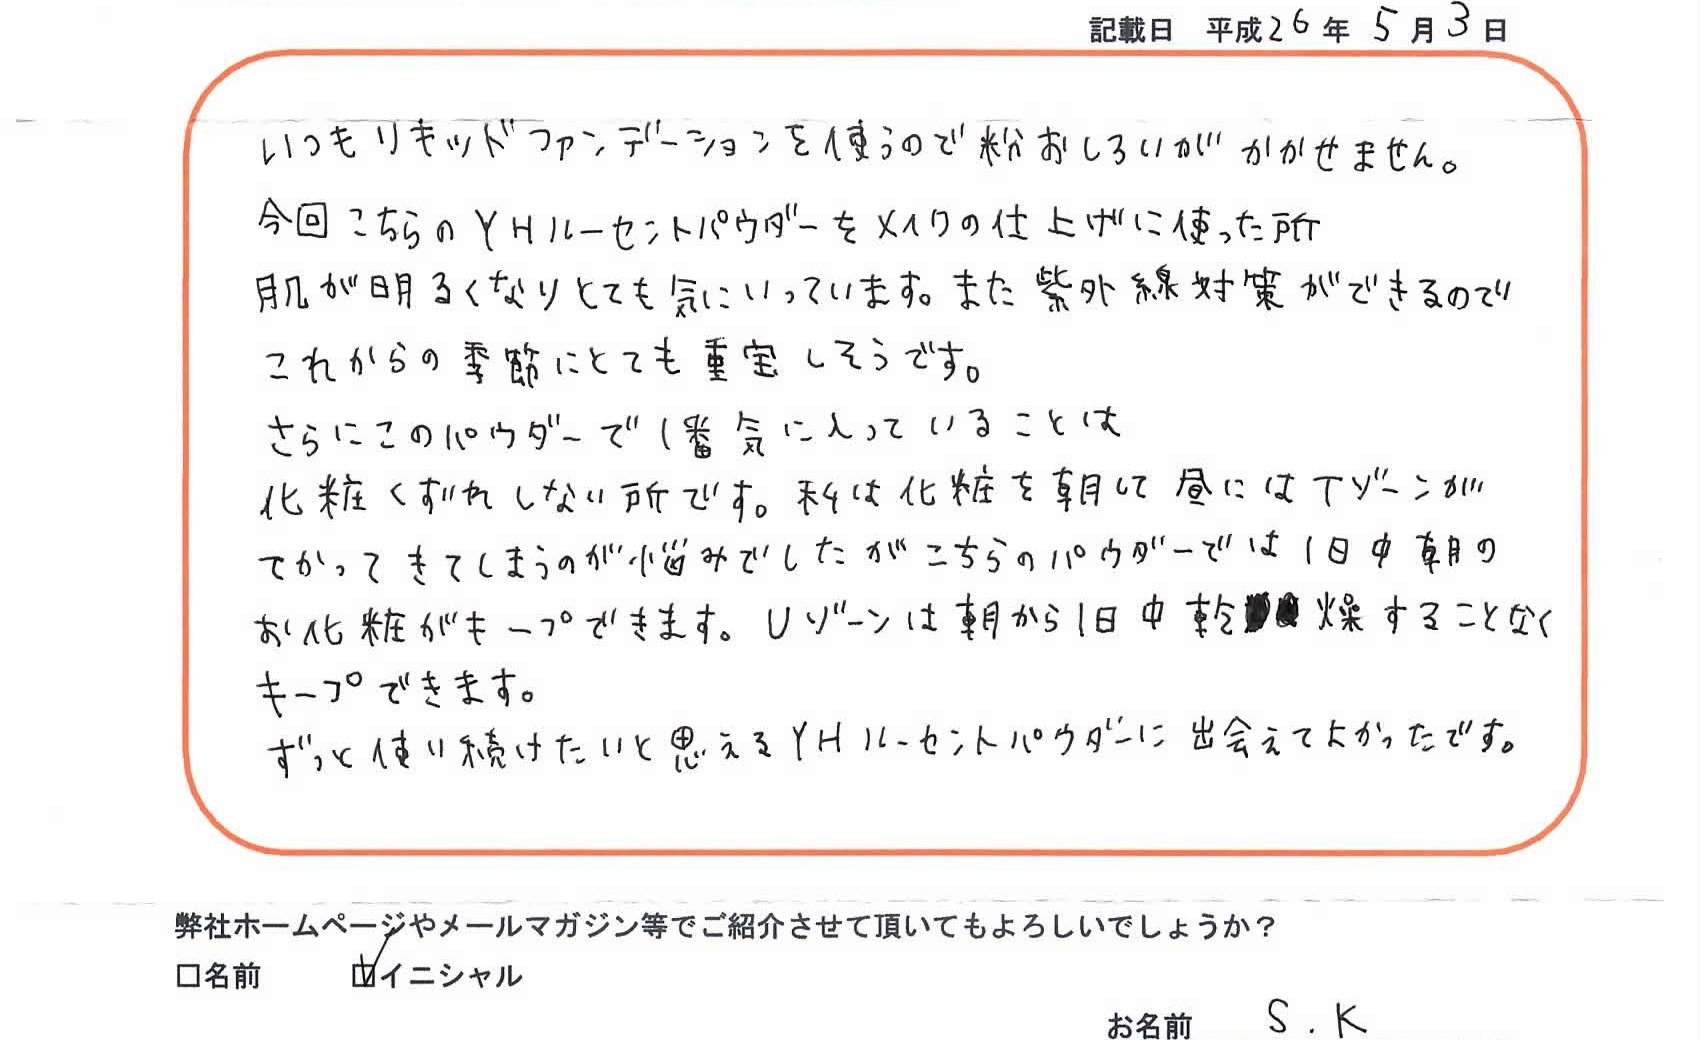 記載日 平成26年 5月3日
いつもリキッドファンデーションを使うので粉おしろいがかかせません。
今回こちらのYHルーセントパウダーをメイクの仕上げに使った所
肌が明るくなりとても気にいっています。また紫外線対策ができるので
これからの季節にとても重宝しそうです。
さらにこのパウダーで1番気に入っていることは
化粧くずれしない所です。私は化粧を朝して昼にはTゾーンが
てかってきてしまうのが悩みでしたがこちらのパウダーでは1日中朝の
お化粧がキープできます。Uゾーンは朝から1日中乾燥することなく
キープできます。
ずっと使い続けたいと思えるYHルーセントパウダーに出会えてよかったです。
弊社ホームページやメールマガジン等でご紹介させて頂いてもよろしいでしょうか？
□名前 ☑イニシャル
お名前 S.K